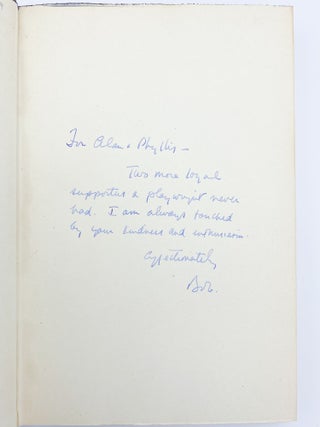 For Alan & Phyllis —
Two more loyal
supporters a playwright never
had. I am always touched
by your kindness and enthusiasm.
Affectionately,
Bob.